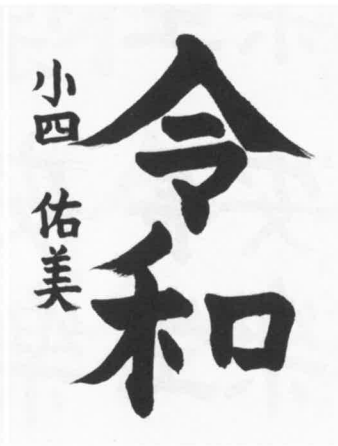 令和
小四 佑美